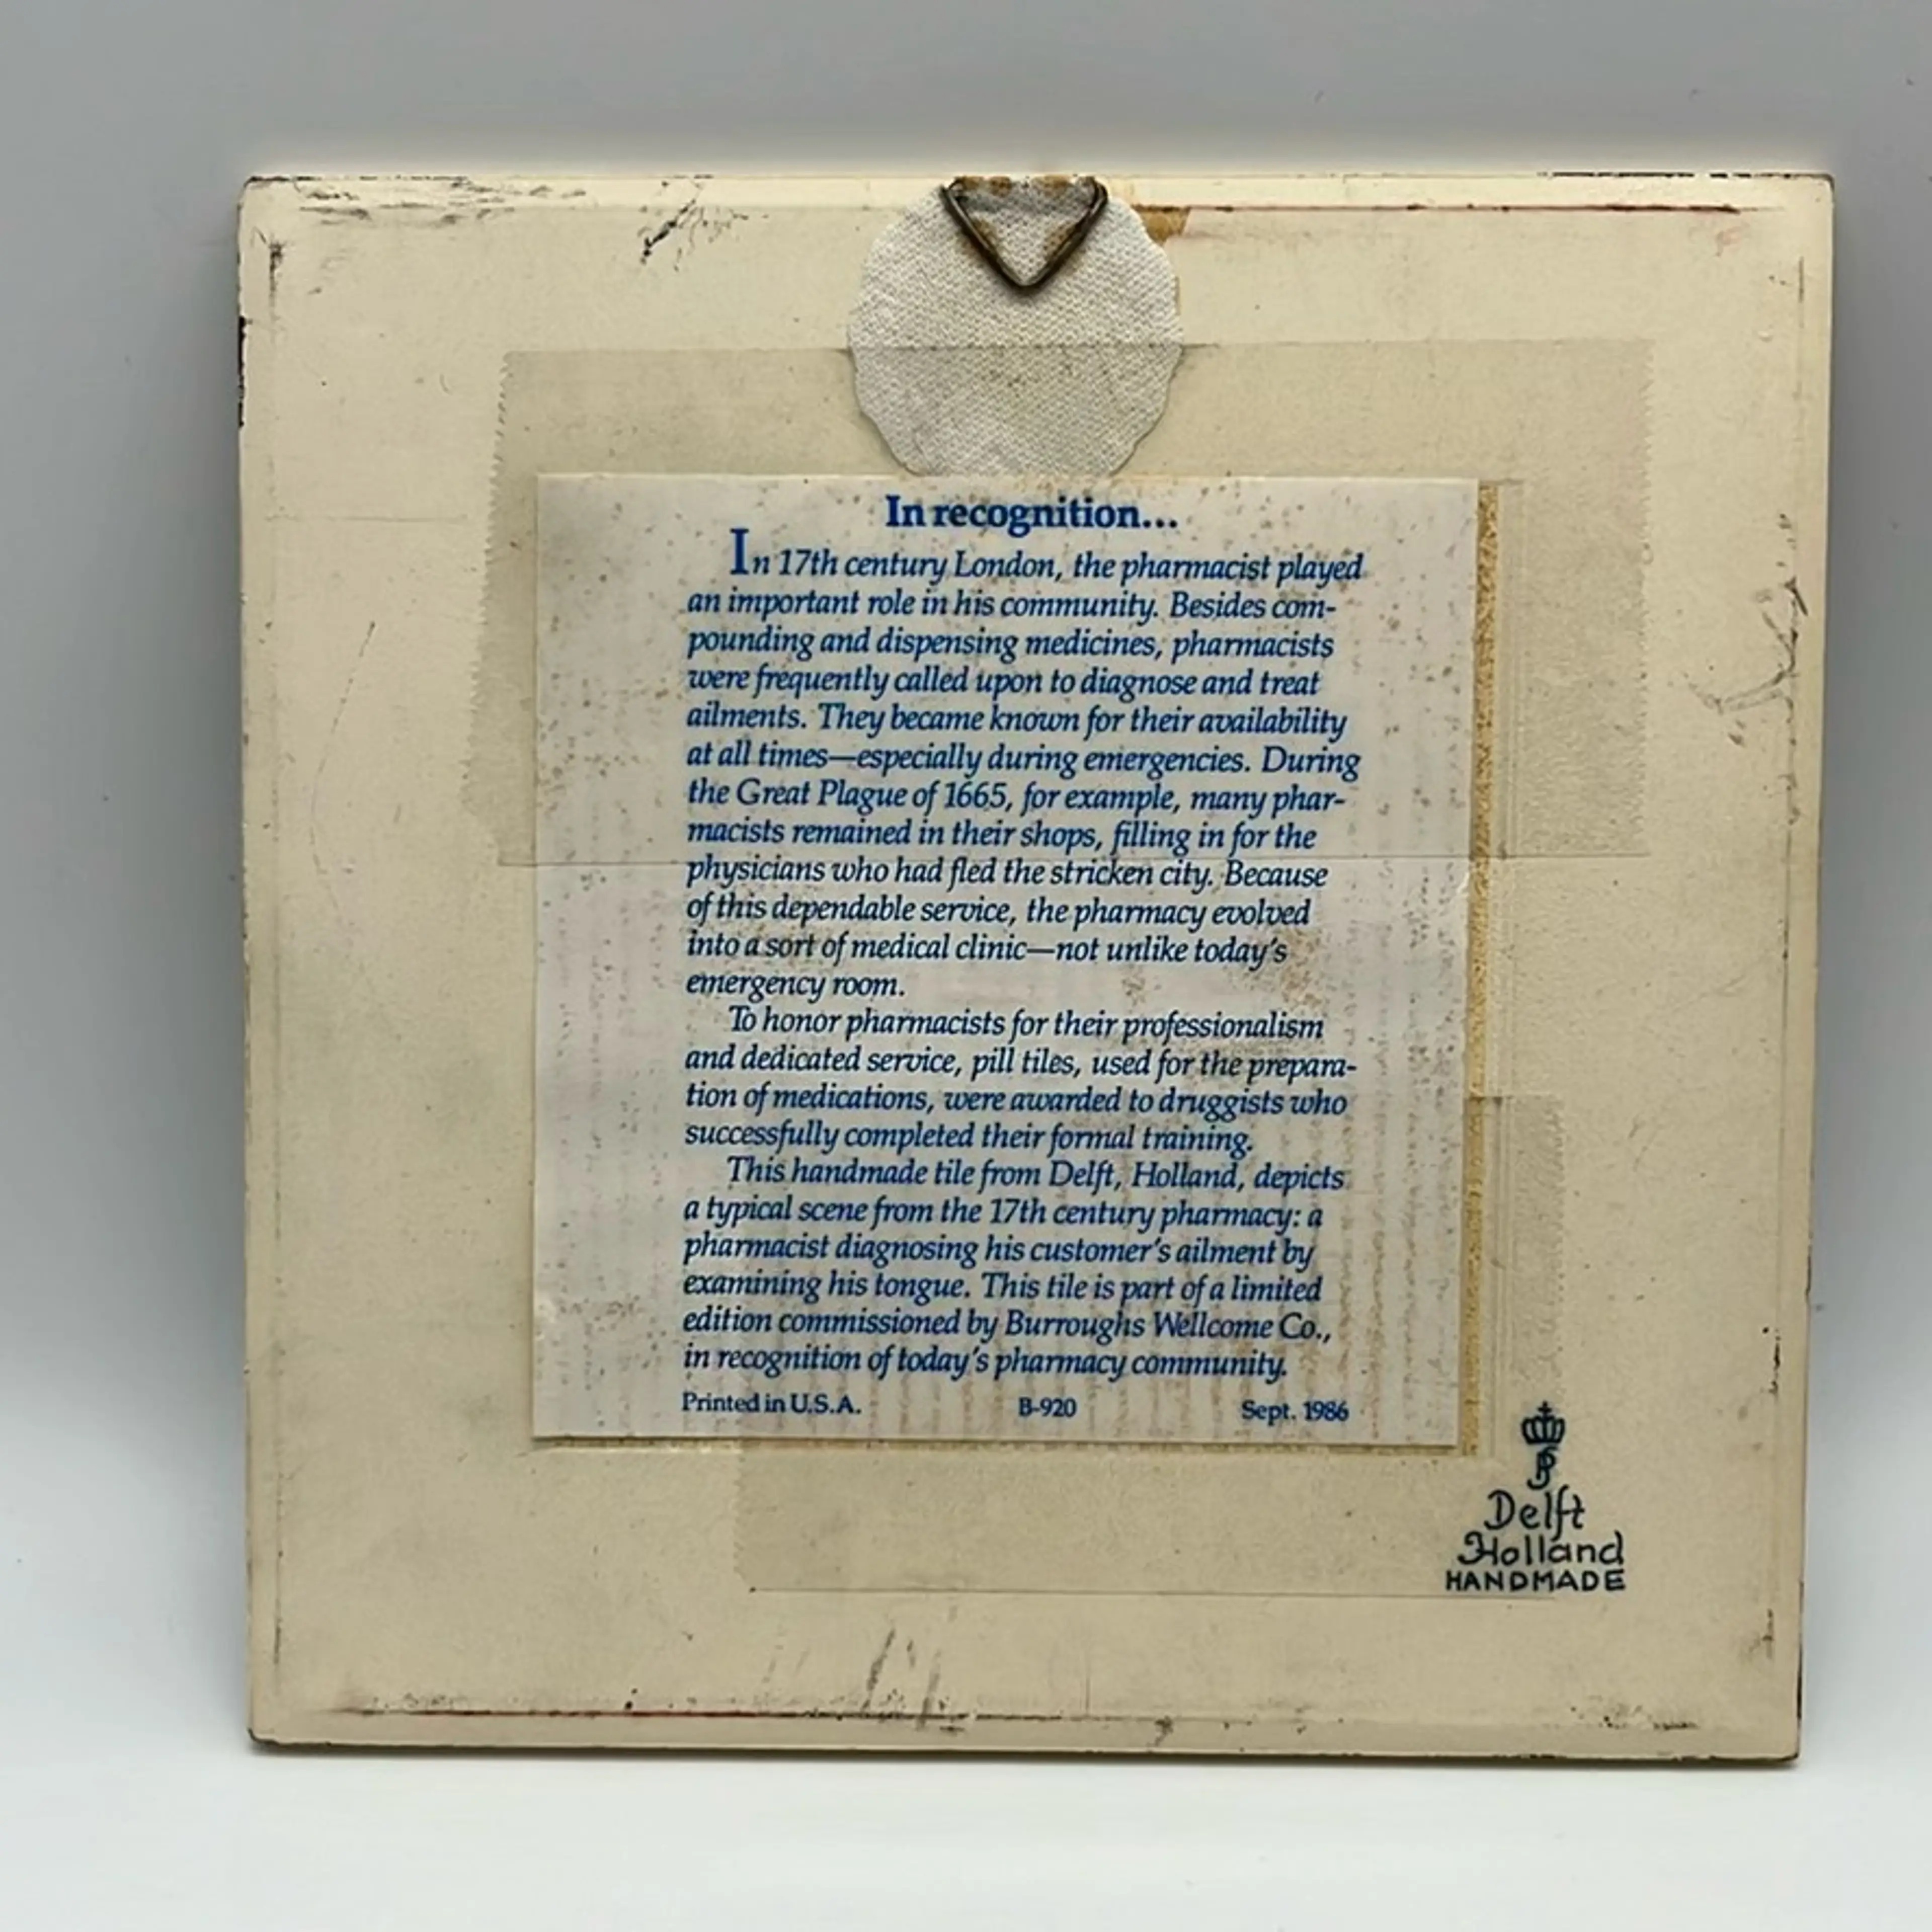 In recognition...
In 17th century London, the pharmacist played
an important role in his community. Besides com-
pounding and dispensing medicines, pharmacists
were frequently called upon to diagnose and treat
ailments. They became known for their availability
at all times—especially during emergencies. During
the Great Plague of 1665, for example, many phar-
macists remained in their shops, filling in for the
physicians who had fled the stricken city. Because
of this dependable service, the pharmacy evolved
into a sort of medical clinic—not unlike today's
emergency room.
To honor pharmacists for their professionalism
and dedicated service, pill tiles, used for the prepara-
tion of medications, were awarded to druggists who
successfully completed their formal training.
This handmade tile from Delft, Holland, depicts
a typical scene from the 17th century pharmacy: a
pharmacist diagnosing his customer's ailment by
examining his tongue. This tile is part of a limited
edition commissioned by Burroughs Wellcome Co.,
in recognition of today's pharmacy community.
Printed in U.S.A. B-920 Sept. 1986
Delft
Holland
HANDMADE